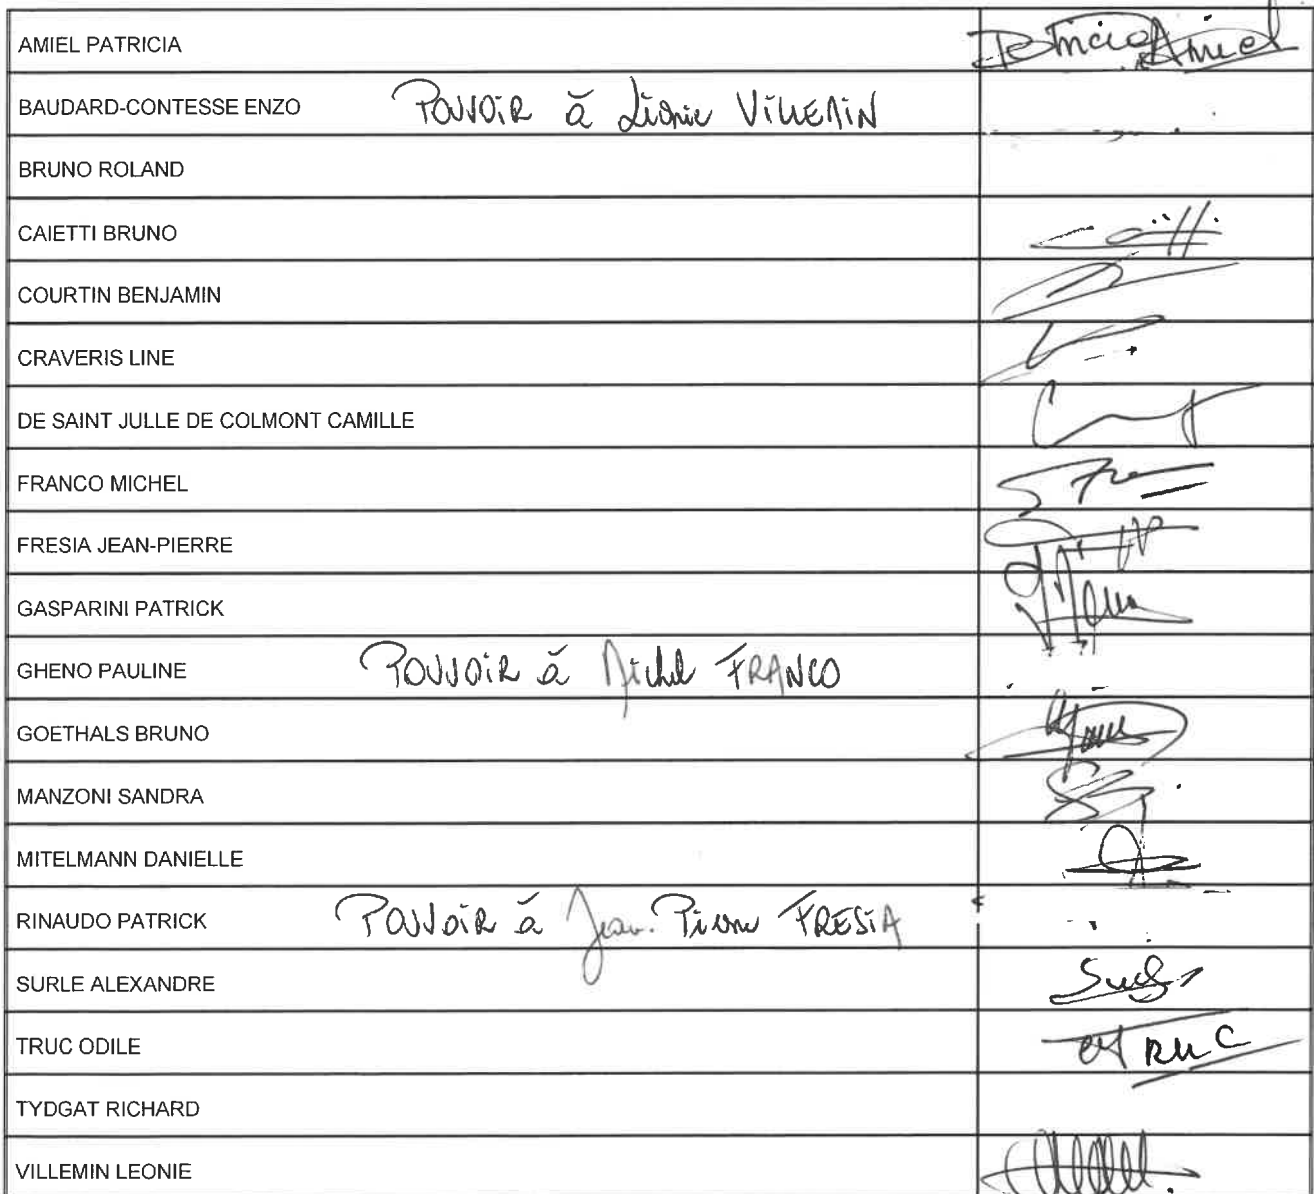 AMIEL PATRICIA Patricia Amiel
BAUDARD-CONTESSE ENZO Pouvoir à Léonie VILLEMIN
BRUNO ROLAND
CAIETTI BRUNO
COURTIN BENJAMIN
CRAVERIS LINE
DE SAINT JULLE DE COLMONT CAMILLE
FRANCO MICHEL
FRESIA JEAN-PIERRE
GASPARINI PATRICK
GHENO PAULINE POUVOIR à Michel FRANCO
GOETHALS BRUNO
MANZONI SANDRA
MITELMANN DANIELLE
RINAUDO PATRICK POUVOIR à Jean-Pierre FRESIA
SURLE ALEXANDRE
TRUC ODILE TRUC
TYDGAT RICHARD
VILLEMIN LEONIE